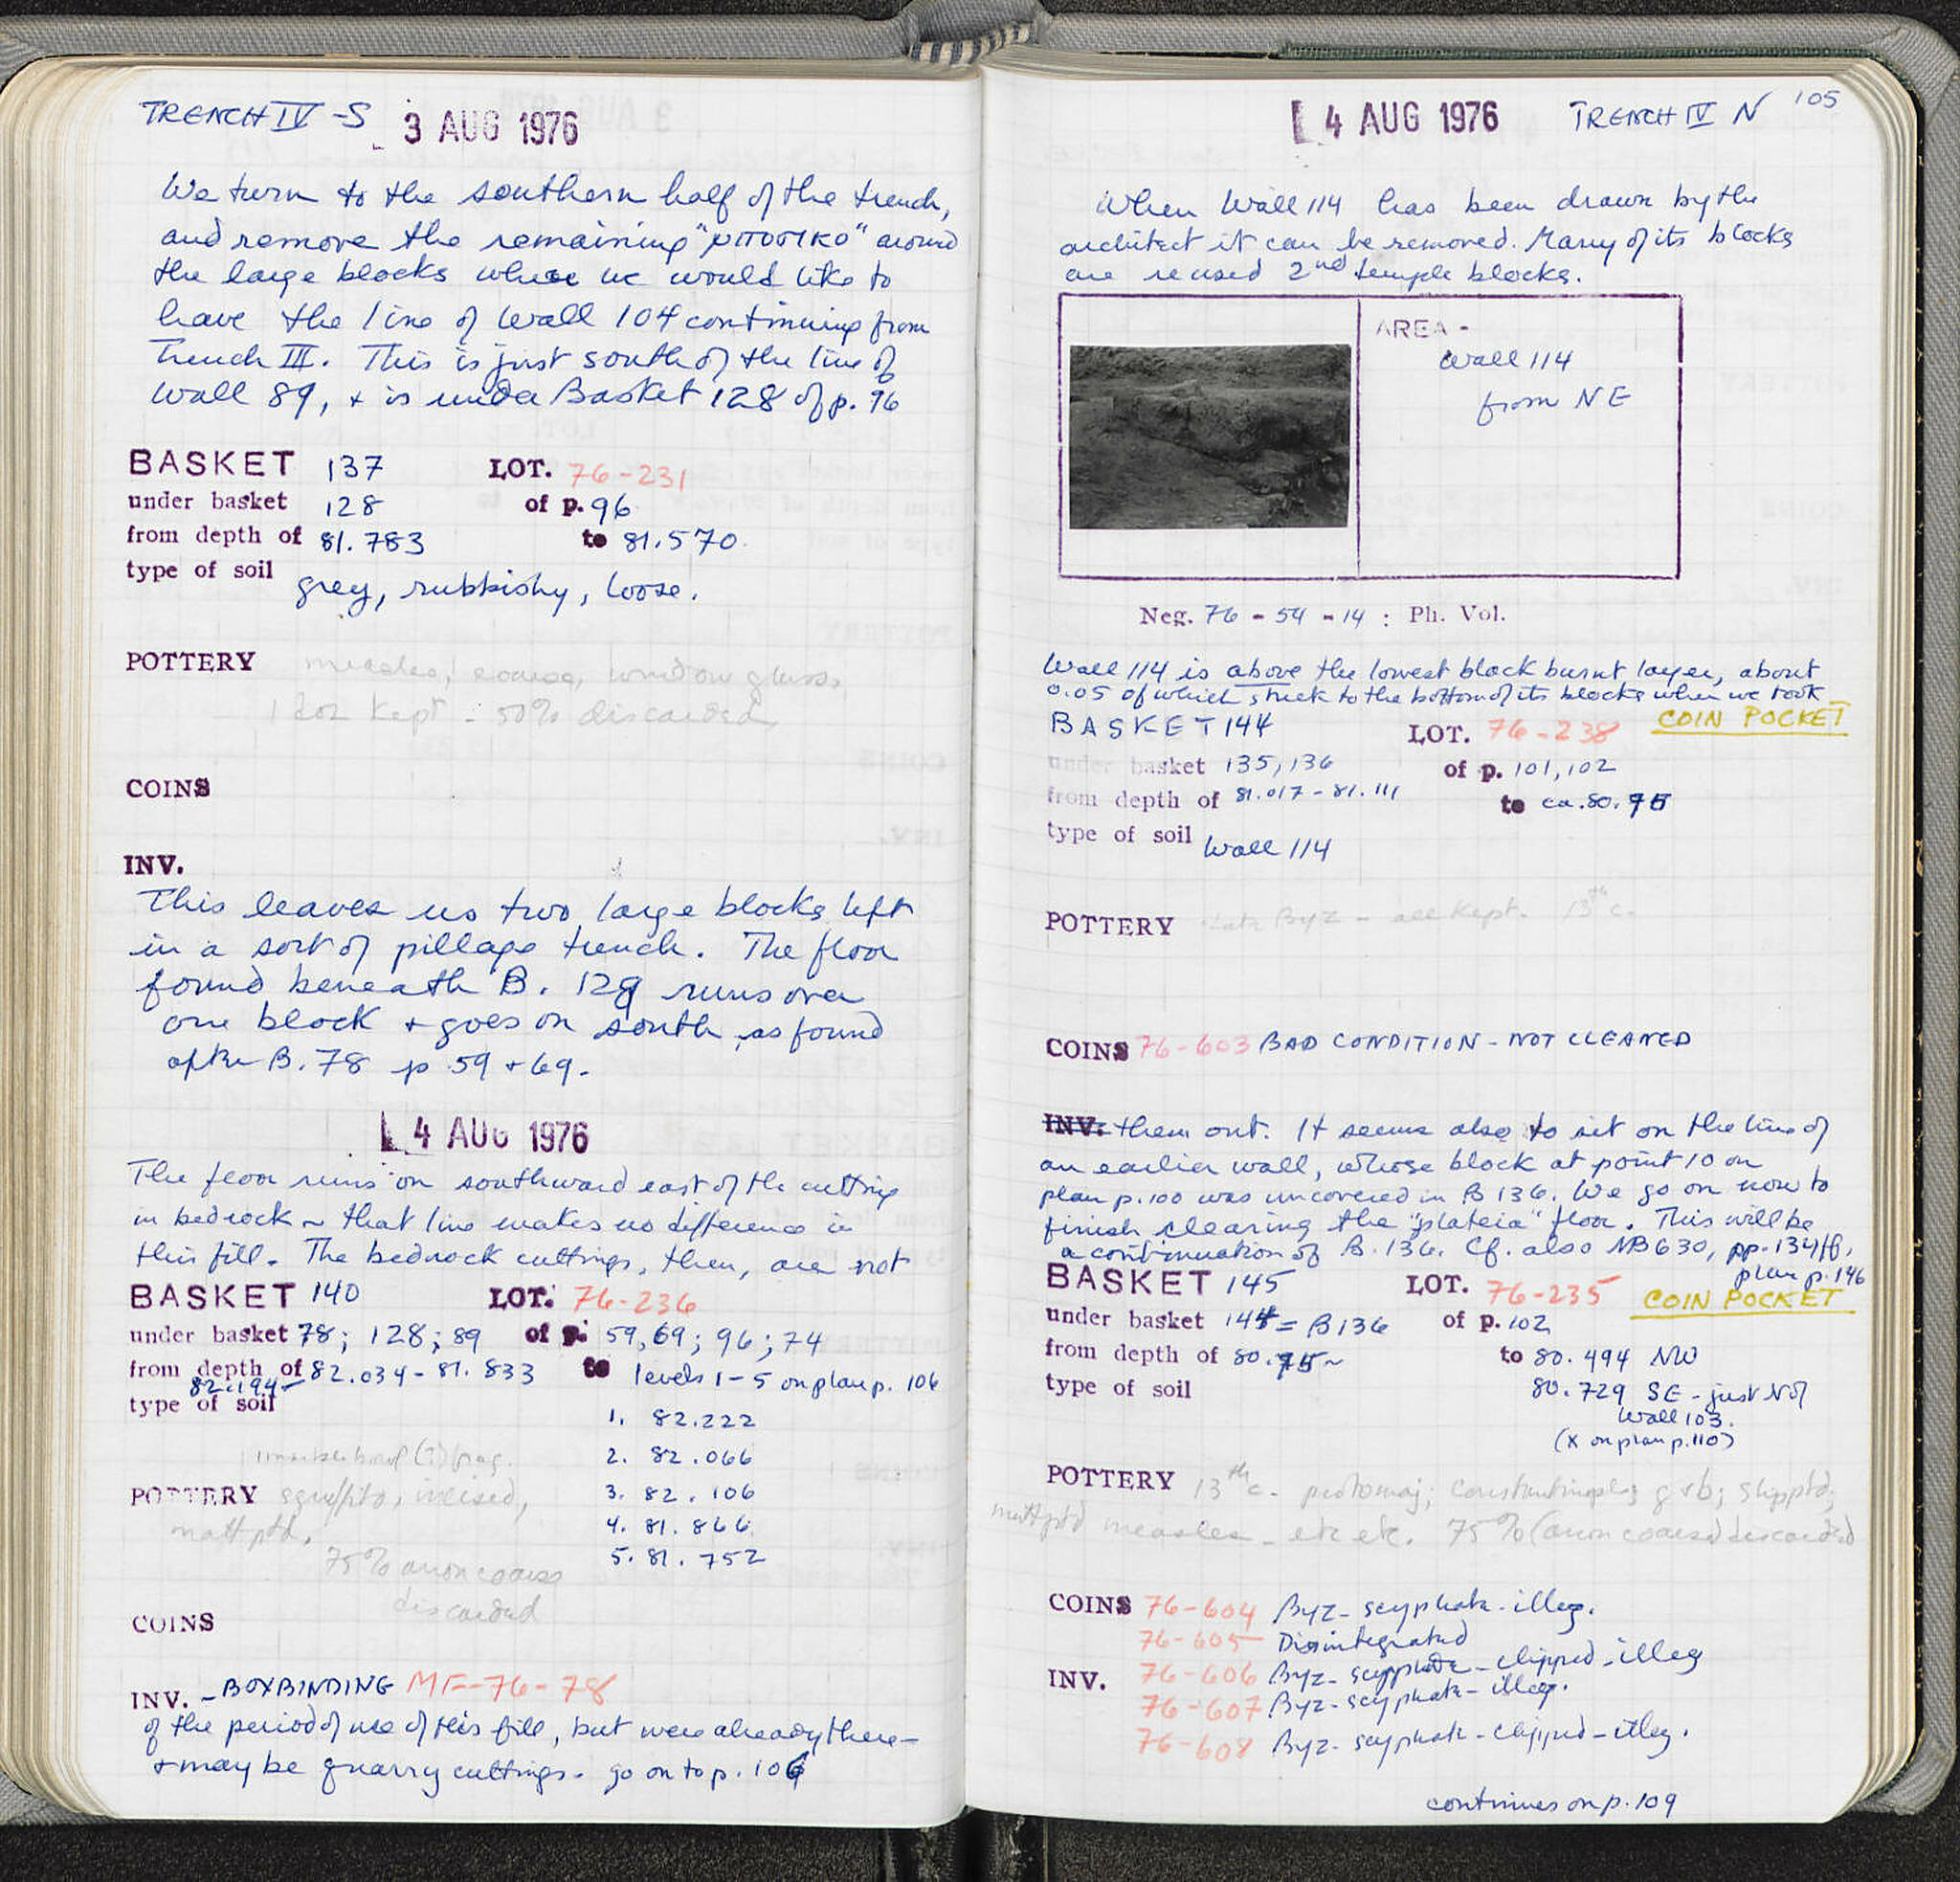 TRENCH IV -S 3 AUG 1976
We turn to the southern half of the trench,
and remove the remaining "μποστικο" around
the large blocks where we would like to
have the line of Wall 104 continuing from
Trench III. This is just south of the line of
Wall 89, + is under Basket 128 of p. 96
BASKET 137 LOT. 76-231
under basket 128 of p. 96
from depth of 81.783 to 81.570.
type of soil grey, rubbishy, loose.
POTTERY measles, coarse, window glass
1 box kept - 50% discarded
COINS
INV.
This leaves us two large blocks left
in a sort of pillage trench. The floor
found beneath B. 129 runs over
one block + goes on south, as found
after B. 78 p 59 + 69.
4 AUG 1976
The floor runs on southward east of the cutting
in bedrock ~ that line makes no difference in
this fill. The bedrock cuttings, then, are not
BASKET 140 LOT. 76-236
under basket 78; 128; 89 of p. 59,69; 96; 74
from depth of 82.034 - 81.833 to levels 1-5 on plan p. 106
82.194-
type of soil
1. 82.222
2. 82.066
3. 82.106
4. 81.866
5. 81.752
marble bowl (?) frag.
POTTERY sgraffito, incised,
matt ptd.
75% anon coarse
discarded
COINS
INV. - BOXBINDING MF-76-78
of the period of use of this fill, but were already there -
+ may be quarry cuttings. go on to p. 106
4 AUG 1976 TRENCH IV N 105
When Wall 114 has been drawn by the
architect it can be removed. Many of its blocks
are reused 2nd temple blocks.
AREA -
Wall 114
from NE
Neg. 76 - 54 - 14 : Ph. Vol.
Wall 114 is above the lowest black burnt layer, about
0.05 of which stuck to the bottom of its blocks when we took
COIN POCKET
BASKET 144 LOT. 76-238
under basket 135, 136 of p. 101, 102
from depth of 81.017 - 81.111 to ca. 80.75
type of soil Wall 114
POTTERY Late Byz - all kept. 13th c.
COINS 76-603 BAD CONDITION - NOT CLEANED
INV. them out. It seems also to sit on the line of
an earlier wall, whose block at point 10 on
plan p. 100 was uncovered in B 136. We go on now to
finish clearing the "plateia" floor. This will be
a continuation of B. 136. Cf. also NB 630, pp. 134ff,
plan p. 146
BASKET 145 LOT. 76-235 COIN POCKET
under basket 144 = B136 of p. 102
from depth of 80.75 ~ to 80.494 NW
type of soil 80.729 SE - just N of
Wall 103.
(X on plan p. 110)
POTTERY 13th c. protomaj; Constantinople; grb; slipptd;
matt ptd measles - etc etc. 75% (anon coarse) discarded
COINS 76-604 Byz - scyphate - illeg.
76-605 Disintegrated
INV. 76-606 Byz - scyphate - clipped - illeg
76-607 Byz - scyphate - illeg.
76-608 Byz - scyphate - clipped - illeg.
continues on p. 109